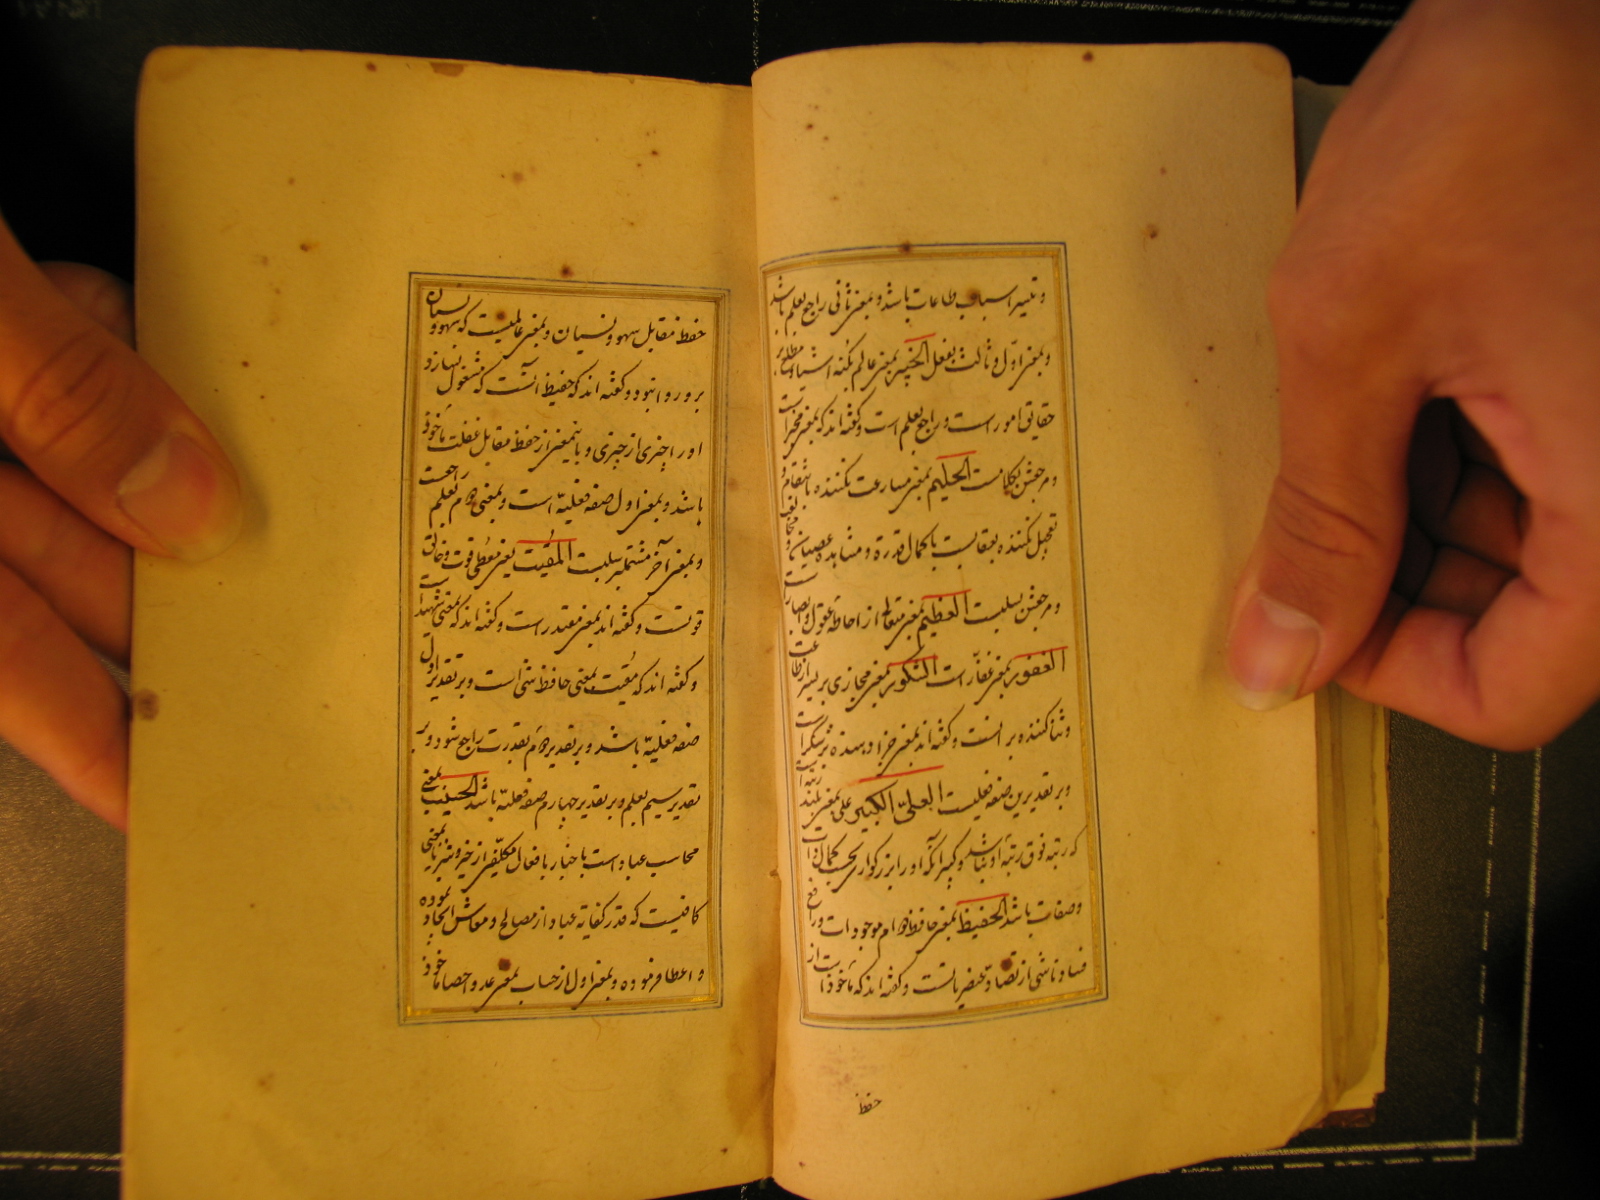 و تیسیر اسباب طاعات باشد و بمعنی ثانی راجع بعلم باشد
و بمعنی اوّل و ثالث بفعل الخبیر بمعنی عالم بکنه اشیا و مطلع بر
حقایق امور است و راجع بعلم است و گفته اند که بمعنی مخبر است
و مرجعش بکلامست الحلیم بمعنی مسارعت نکننده بانتقام و
تعجیل نکننده بعقابست با کمال قدرة و مشاهده عصیان و مخالفت
و مرجعش بسلبست العظیم بمعنی متعالی از احاطه عقول و ابصار است
الغفور بمعنی غفّار است الشکور بمعنی مجازی بر یسیر از طاعت
و ثنا کننده بر آنست و گفته اند بمعنی جزا دهنده بر شکر است
و بر تقدیرین صفه فعلیست العلیّ الکبیر علی بمعنی بلند رتبه
که رتبه فوق رتبهٔ او نباشد و کبیر آنکه او را بزرگواری بحسب کمال ذات
و صفات باشد الحفیظ بمعنی حافظ دوام موجودات و رافع
فساد ناشی از تضاد عنصریاتست و گفته اند که ماخوذ است از
حفظ
حفظ مقابل سهو و نسیان و بمعنی عالمیست که سهو و نسیان
برو روا نبود و گفته اند که حفیظ آنست که مشغول نسازد
او را چیزی از چیزی و باینمعنی از حفظ مقابل غفلت ماخوذ
باشد و بمعنی اول صفه فعلیّه است و بمعنی دوم بعلم راجعست
و بمعنی آخر مشتمل بر سلبست المقیت یعنی معطی قوت و خالق
قوتست و گفته اند بمعنی مقتدر است و گفته اند که بمعنی شهید است
و گفته اند که مقیت بمعنی حافظ شی است و بر تقدیر اول
صفه فعلیّه باشد و بر تقدیر دوم بقدرت راجع شود و بر
تقدیر سیم بعلم و بر تقدیر چهارم صفه فعلیّه باشد الحسیب بمعنی
محاسب عباد است باخبار بافعال مکلّفین از خیر و شر یا بمعنی
کافیست که قدر کفایة عباد از مصالح و معاش ایجاد نموده
و اعطا فرموده و بمعنی اول از حساب بمعنی عد و احصا ماخوذ